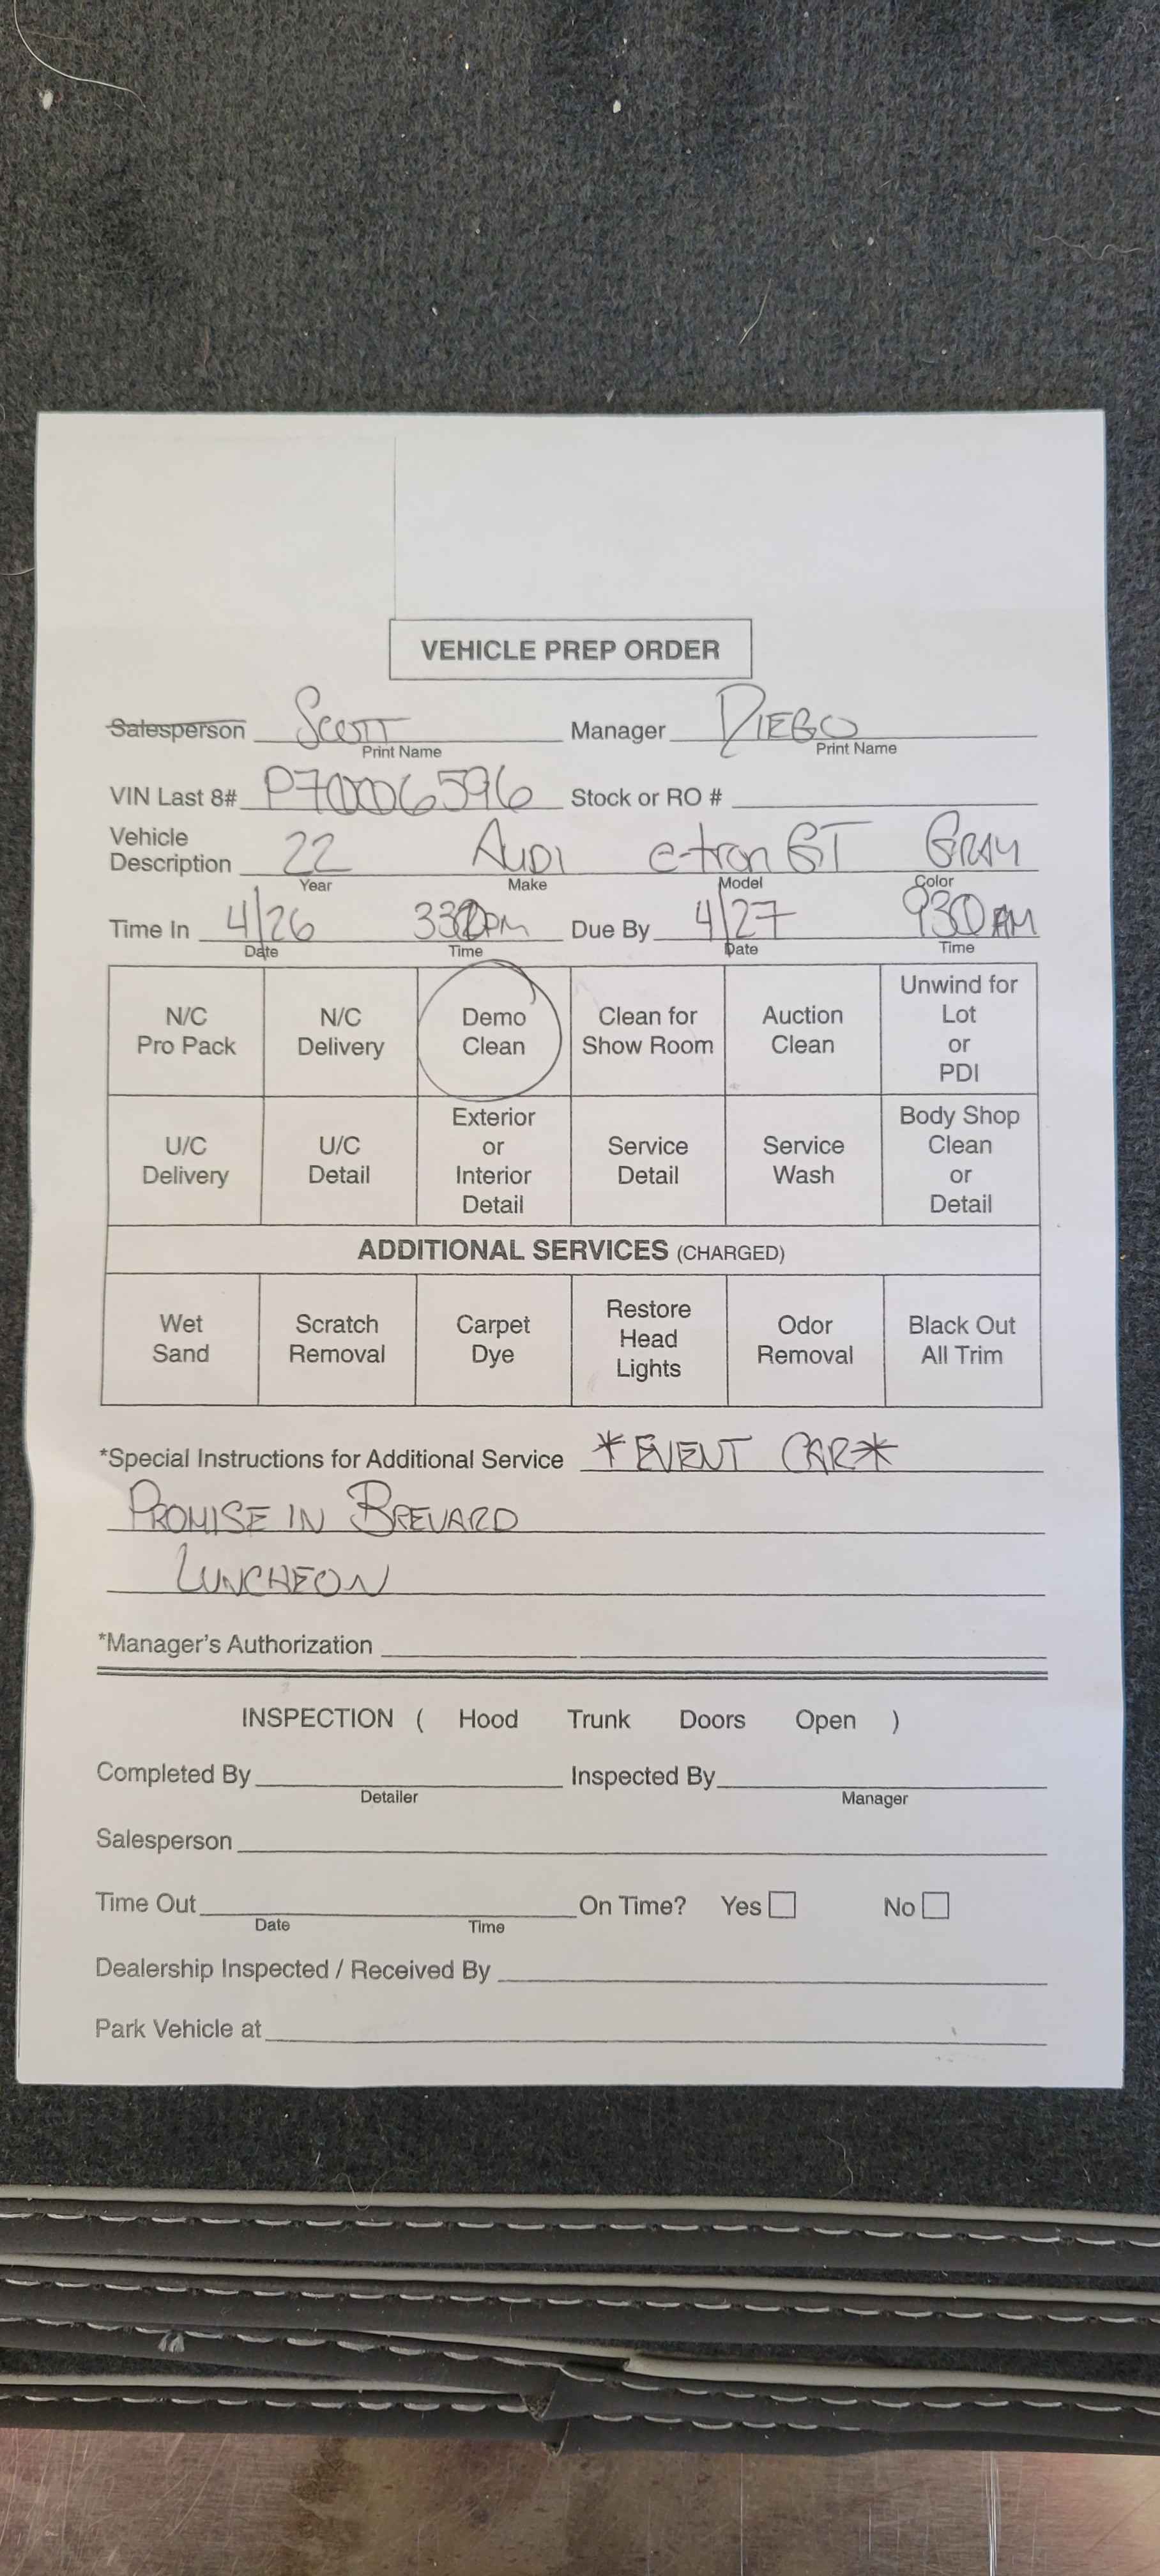 VEHICLE PREP ORDER
Salesperson Scott Manager DIEGO
Print Name Print Name
VIN Last 8# P7006596 Stock or RO #
Vehicle Description 22 AUDI e-tron GT GRAY
Year Make Model Color
Time In 4/26 330PM Due By 4/27 930 AM
Date Time Date Time
N/C Pro Pack N/C Delivery Demo Clean Clean for Show Room Auction Clean Unwind for Lot or PDI
U/C Delivery U/C Detail Exterior or Interior Detail Service Detail Service Wash Body Shop Clean or Detail
ADDITIONAL SERVICES (CHARGED)
Wet Sand Scratch Removal Carpet Dye Restore Head Lights Odor Removal Black Out All Trim
*Special Instructions for Additional Service *EVENT CAR*
PROMISE IN BREVARD
LUNCHEON
*Manager's Authorization
INSPECTION ( Hood Trunk Doors Open )
Completed By Inspected By
Detailer Manager
Salesperson
Time Out On Time? Yes No
Date Time
Dealership Inspected / Received By
Park Vehicle at